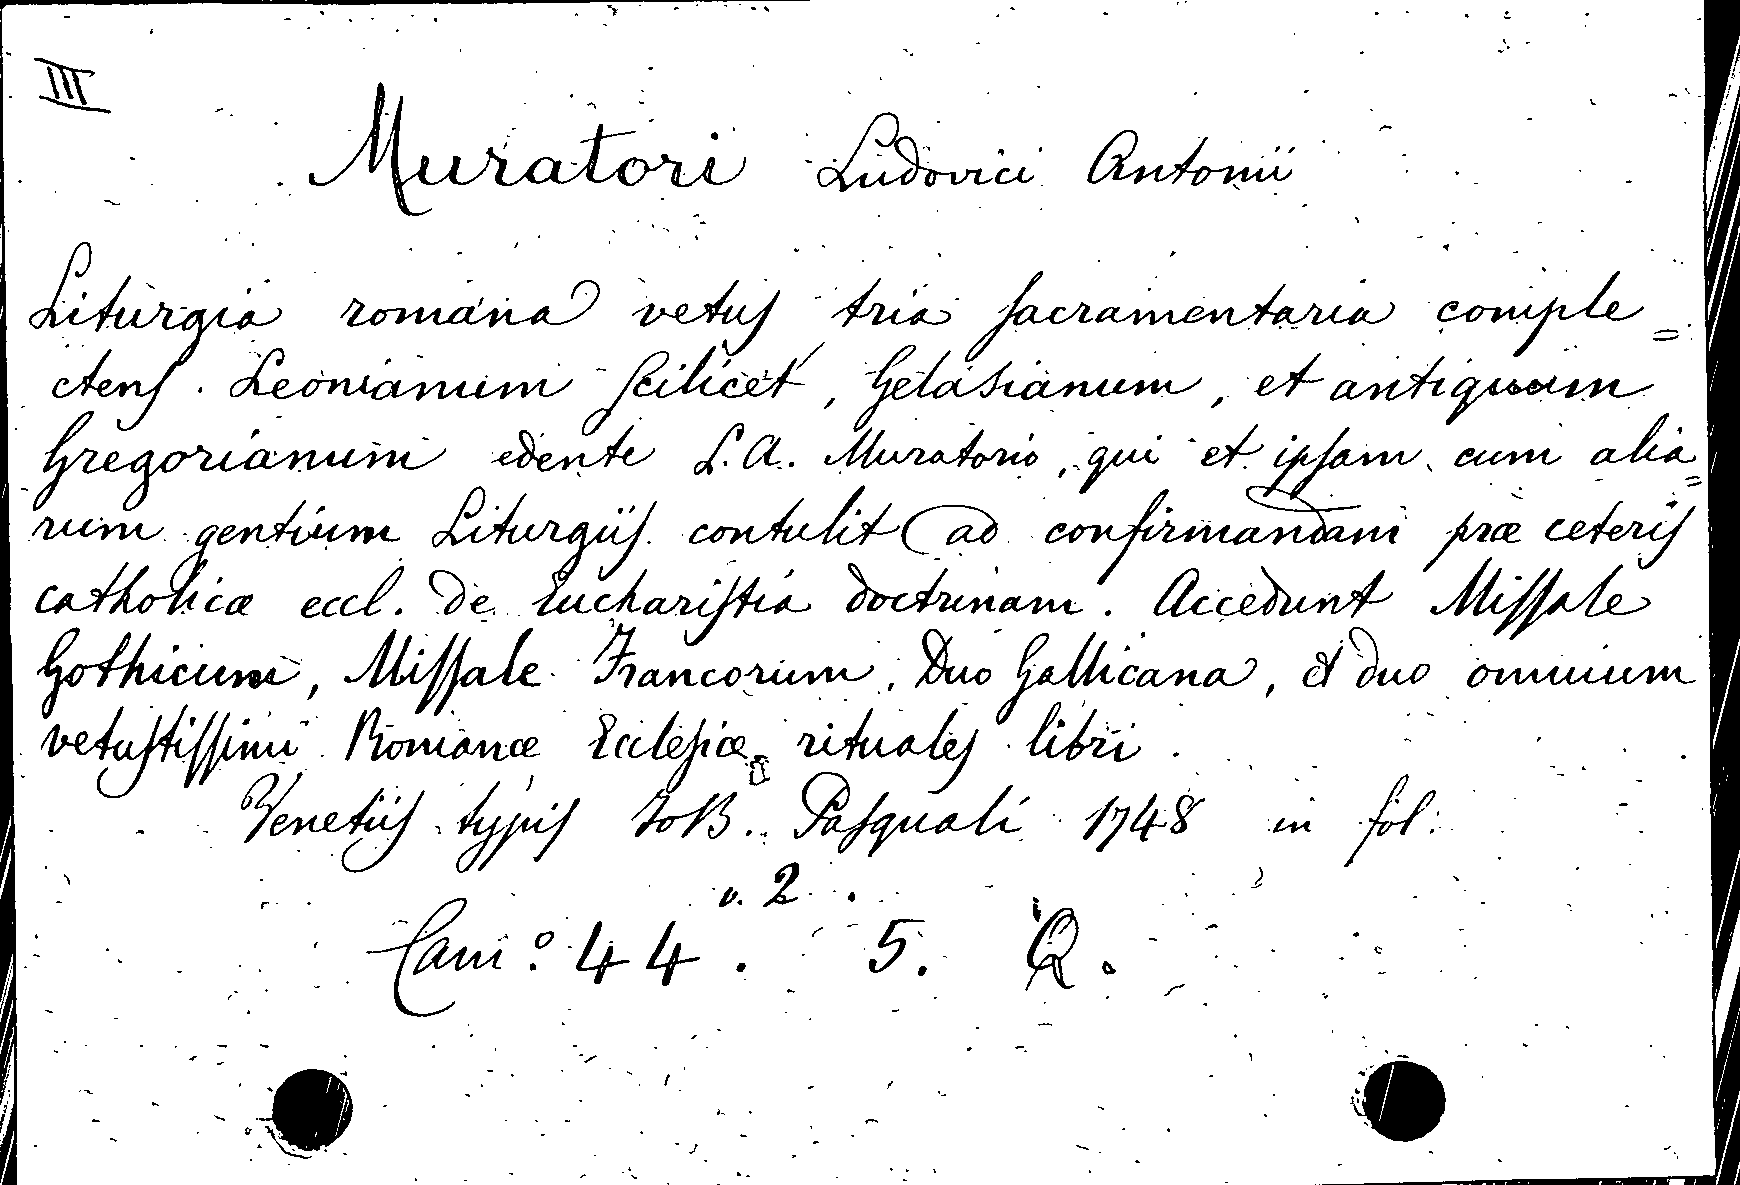 III
Muratori Ludovici Antonii
Liturgia romana vetus tria sacramentaria comple=
ctens. Leonianum scilicet, Gelasianum, et antiquum
Gregorianum edente L. A. Muratorio, qui et ipsam cum alia=
rum gentium Liturgiis contulit ad confirmandam præ ceteris
catholicæ eccl. de Eucharistia doctrinam. Accedunt Missale
Gothicum, Missale Francorum, Duo Gallicana, et duo omnium
vetustissimi Romanæ Ecclesiæ rituales libri.
Venetiis typis JoB. Pasquali 1748 in fol.
v. 2.
Cam: 44. 5. Q.